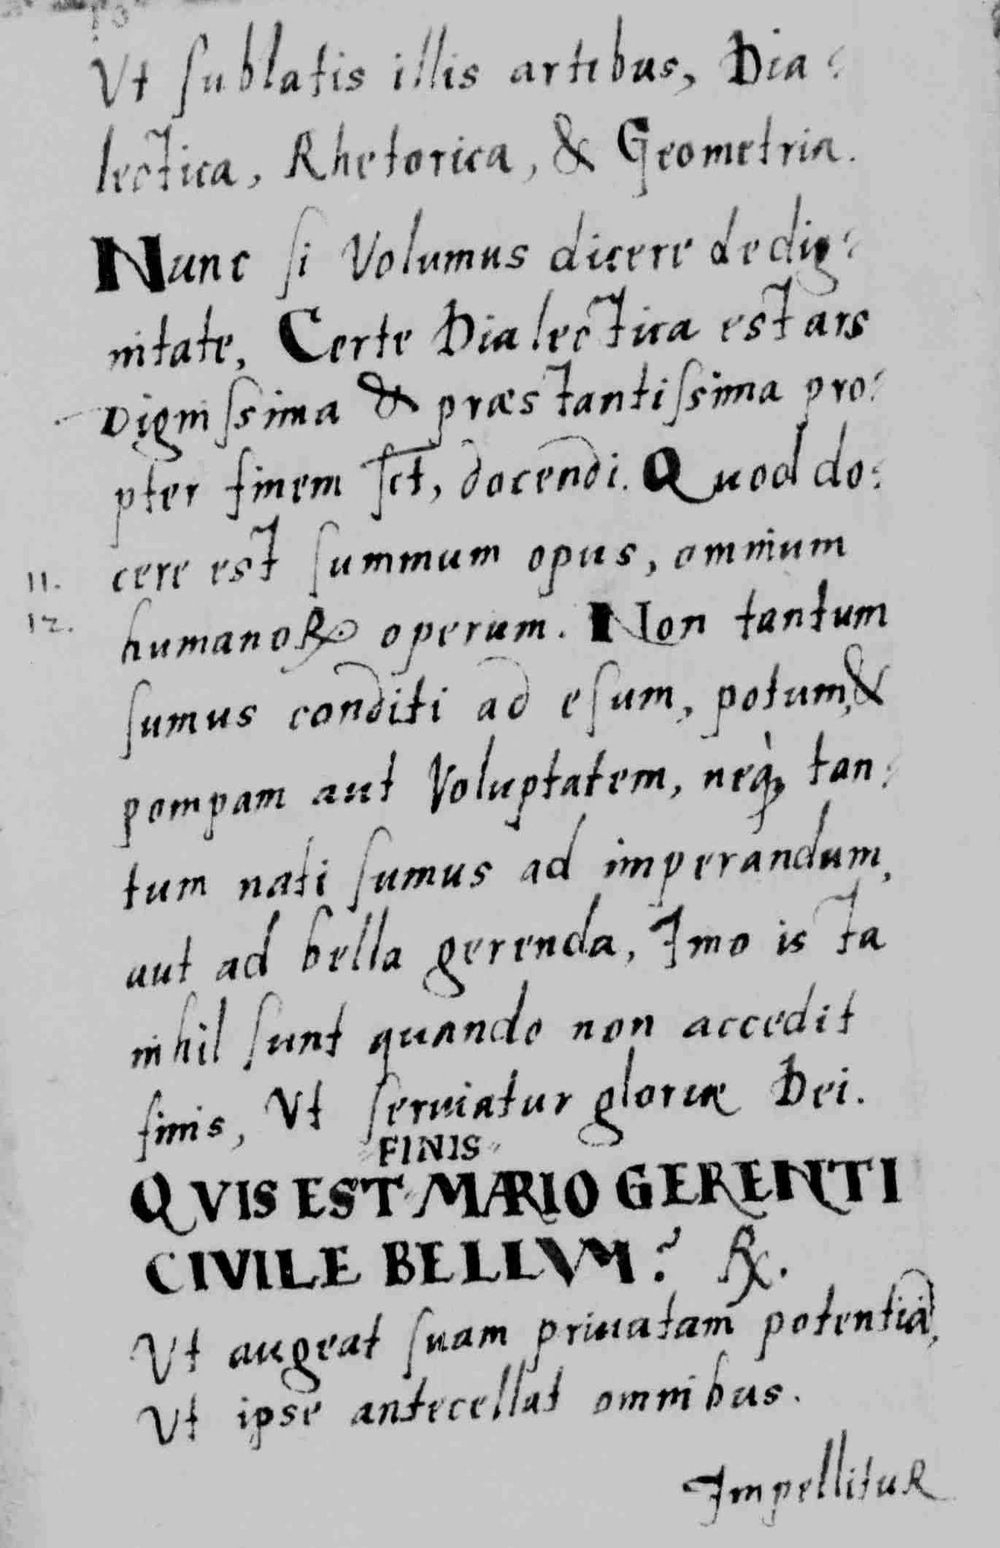 13
Vt ſublatis illis artibus, Dia:
lectica, Rhetorica, & Geometria.
Nunc ſi Volumus dicere de dig:
nitate, Certe Dialectica est ars
Digniſsima & præstantiſsima pro:
pter finem ſct, docendi. Quod do:
11. cere est ſummum opus, omnium
12. humanoꝝ operum. Non tantum
ſumus conditi ad eſum, potum, &
pompam aut Voluptatem, neq́ꝫ tan:
tum nati ſumus ad imperandum,
aut ad bella gerenda, Imo is ta
nihil ſunt quando non accedit
finis, Vt ſeruiatur gloriæ Dei.
FINIS
QVIS EST MARIO GERENTI
CIVILE BELLVM? ℞.
Vt augeat ſuam priuatam potentiā,
Vt ipse antecellat omnibus.
Impellitur